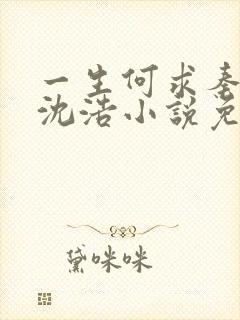 一生何求秦
沈浩小說免
黛咪咪